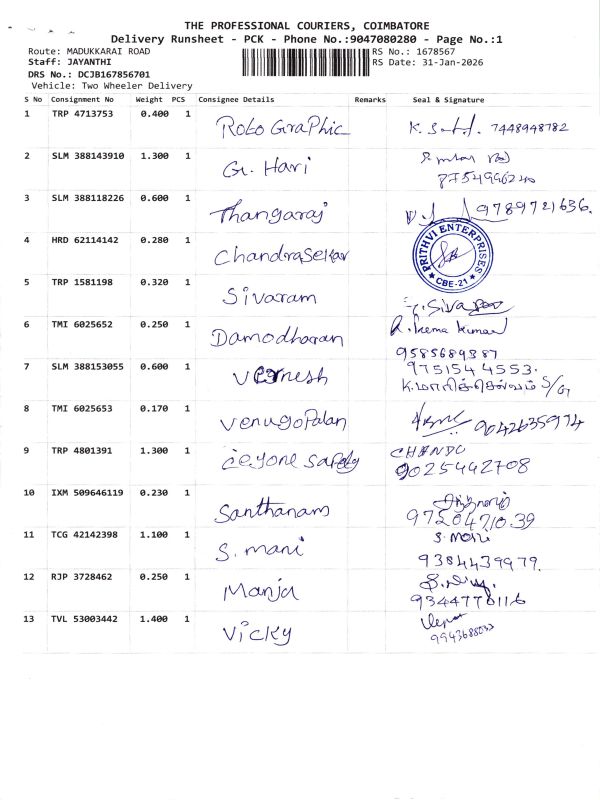 THE PROFESSIONAL COURIERS, COIMBATORE
Delivery Runsheet - PCK - Phone No.:9047080280 - Page No.:1
Route: MADUKKARAI ROAD RS No.: 1678567
Staff: JAYANTHI RS Date: 31-Jan-2026
DRS No.: DCJB167856701
Vehicle: Two Wheeler Delivery
S No Consignment No Weight PCS Consignee Details Remarks Seal & Signature
1 TRP 4713753 0.400 1 Roto GraPhic K. 7448948782
2 SLM 388143910 1.300 1 G. Hari
8754996240
3 SLM 388118226 0.600 1 Thangaraj 9789721636.
4 HRD 62114142 0.280 1 ChandraSekar PRITHVI ENTERPRISES CBE-21
5 TRP 1581198 0.320 1 Sivaram
6 TMI 6025652 0.250 1 Damodharan R. Prema Kumar
9585689387
7 SLM 388153055 0.600 1 975154 4553.
க.மாரிச்செல்வம் S/G
8 TMI 6025653 0.170 1 VenugoPalan 9042635974
9 TRP 4801391 1.300 1 CHANDU
9025442708
10 IXM 509646119 0.230 1 Santhanam
9752047039
11 TCG 42142398 1.100 1 S. mani S. Mani
9384439979.
12 RJP 3728462 0.250 1 Manja
9344778116
13 TVL 53003442 1.400 1 Vicky
9943688033